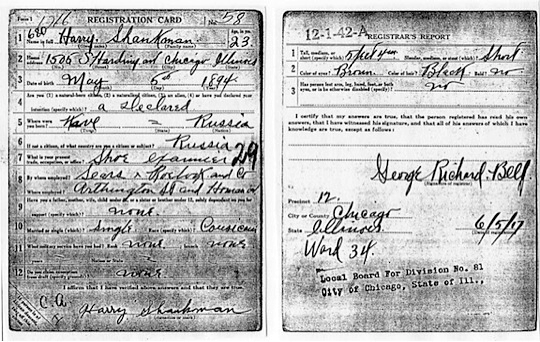 Form 1
1216
REGISTRATION CARD
No. 58
680
Age, in yrs.
1 Name in full Harry Shankman 23
(Given name) (Family name)
2 Home address 1525 S Harding av Chicago Illinois
(No.) (Street) (City) (State)
3 Date of birth May 5th 1894
(Month) (Day) (Year)
4 Are you (1) a natural-born citizen, (2) a naturalized citizen, (3) an alien, (4) or have you declared your
intention (specify which)? a Declared
5 Where were you born? Russia
(Town) (State) (Nation)
6 If not a citizen, of what country are you a citizen or subject? Russia
7 What is your present trade, occupation, or office? Shoe 29
8 By whom employed? Sears Roebuck and Co
Where employed? Arthington St and Homan av
9 Have you a father, mother, wife, child under 12, or a sister or brother under 12, solely dependent on you for
support (specify which)? none
10 Married or single (which)? single Race (specify which)?
11 What military service have you had? Rank none branch none
years Nation or State
12 Do you claim exemption from draft (specify grounds)? none
I affirm that I have verified above answers and that they are true.
Harry Shankman
(Signature or mark)
12-1-42-A
REGISTRAR'S REPORT
1 Tall, medium, or short (specify which)? Slender, medium, or stout (which)? Short
2 Color of eyes? Brown Color of hair? Black Bald? no
3 Has person lost arm, leg, hand, foot, or both
eyes, or is he otherwise disabled (specify)? no
I certify that my answers are true, that the person registered has read his own
answers, that I have witnessed his signature, and that all of his answers of which I have
knowledge are true, except as follows:
George Richard Belf
(Signature of registrar)
Precinct 12
City or County Chicago
State Illinois 6/5/17
Ward 34
Local Board For Division No. 81
City of Chicago, State of Ill.,